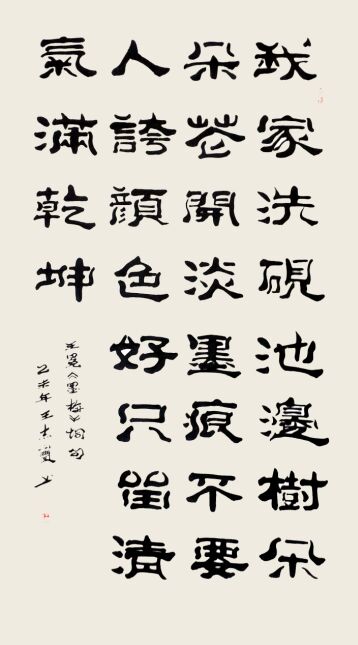 我家洗硯池邊樹朵
朵花開淡墨痕不要
人誇顏色好只留清
氣滿乾坤
王冕
乙未年王